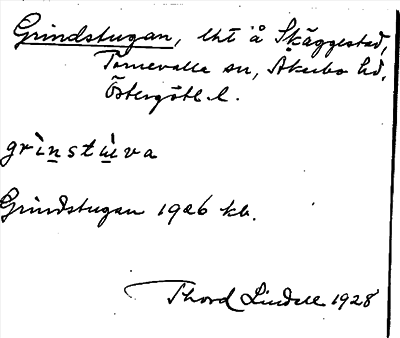 Grindstugan, lht å Skäggestad,
Törnevalla sn, Åkerbo hd,
Östergötl. l.
grìnstùva
Grindstugan 1926 kb.
Thord Lindell 1928